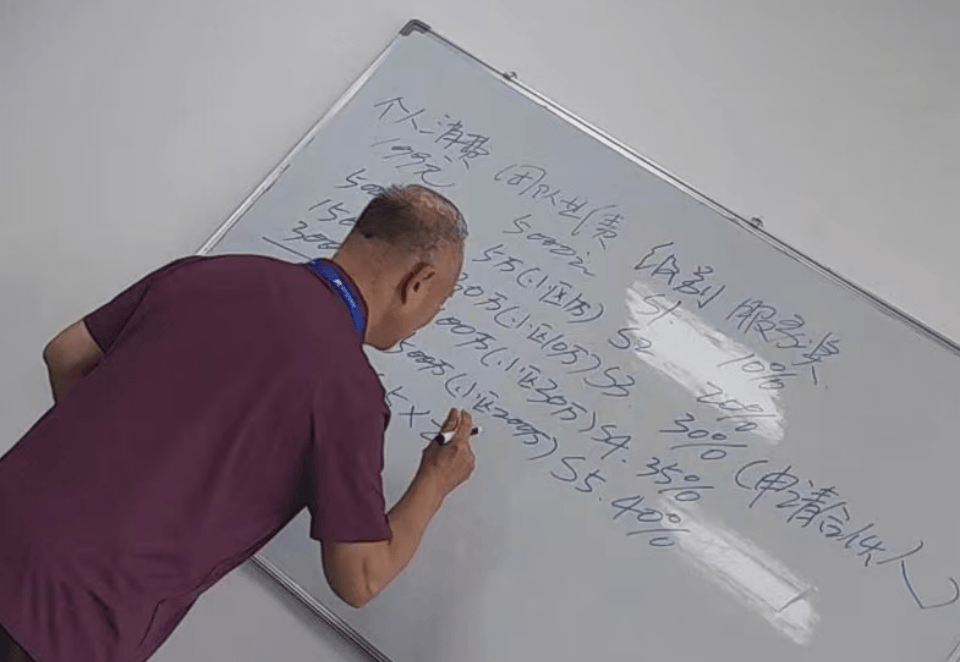 个人消费 团队业绩 级别 服务奖
199元 5000元 S1. 10%
5万(小区1万) S2 20%
150 20万(小区10万) S3. 30% (申请合伙人)
300 00万(小区30万) S4. 35%
500万(小区200万) S5. 40%